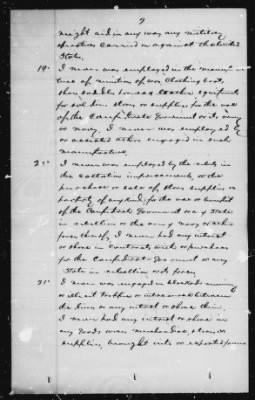 7
might aid in any way any military
operations carried on against the United
States.
19. I never was employed in the manufac
ture of munition of war Clothing boots,
shoes saddles harness leather equipments
for soldiers stores or supplies for the use
of the Confederate Government or its army
or navy. I never was employed by
or assisted others engaged in such
manufacture.
20 I never was employed by the rebels in
the collection impressment or the
purchase or sale of stores supplies or
property of any kind for the use or benefit
of the Confederate Government or any State
in rebellion or the army navy or other
forces thereof, I never had any interest
or share in contracts with or purchases
for the Confederate Government or any
State in rebellion or its forces
21 I never was engaged in blockade running
or illicit traffic or intercourse between
the lines or any interest or share therein
I never had any interest or share in
any goods wares merchandise stores or
supplies brought into or exported from